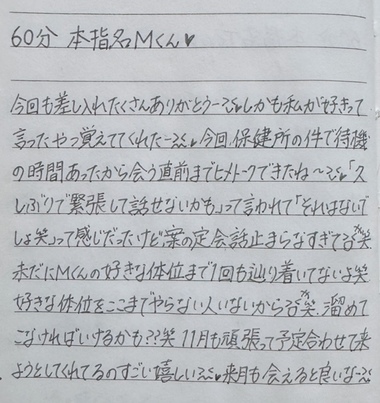 60分 本指名Mくん♥
今回も差し入れたくさんありがとうー しかも私が好きって
言ったやつ覚えててくれたー 今回、保健所の件で待機
の時間あったから会う直前までヒメトークできたね〜 「久
しぶりで緊張して話せないかも」って言われて「それはないで
しょ笑」って感じだったけど案の定会話止まらなすぎて 笑
未だにMくんの好きな体位まで1回も辿り着いてないよ笑
好きな体位をここまでやらない人いないから 笑 溜めて
こなければいけるかも??笑 11月も頑張って予定合わせて来
ようとしてくれてるのすごい嬉しい 来月も会えると良いなー